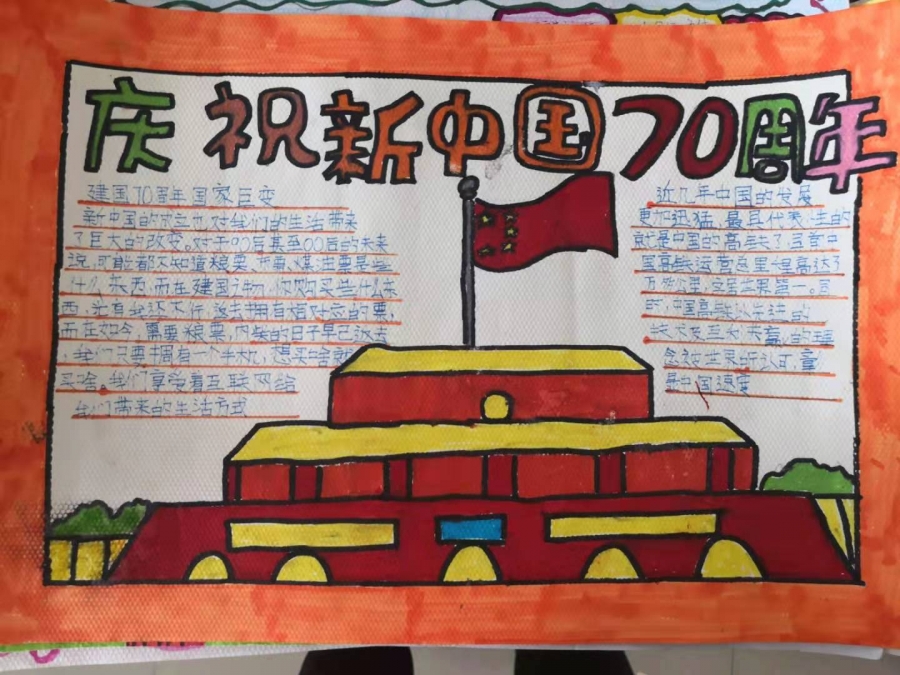 庆祝新中国70周年
建国70周年国家巨变
新中国的成立也对我们的生活带来
了巨大的改变。对于90后甚至00后的未来
说,可能都不知道粮票、布票、煤油票是些
什么东西,而在建国初期,你购买些什么东
西,光有钱还不行,还去拥有相对应的票,
而在如今,需要粮票,肉柴的日子早已远去
,我们只要拥有一个手机,想买啥就
买啥。我们享受着互联网给
我们带来的生活方式
近几年中国的发展
更加迅猛,最具代表性的
就是中国的高铁了,目前中
国高铁运营总里程高达了
万公里,世界第一。
中国高铁以先进的
技术及
念被世界所认可,
是中国速度